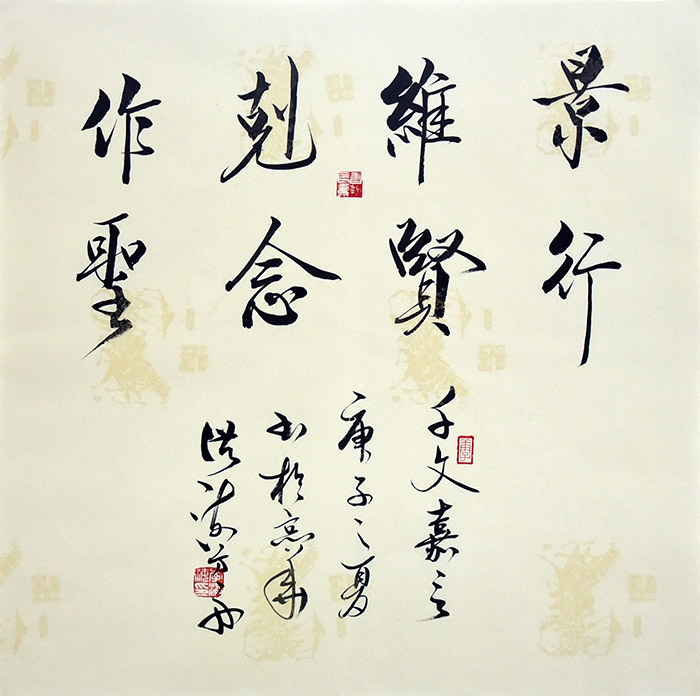 景行
維賢
剋念
作聖
千文嘉言
庚子之夏
书於京華
洪涛